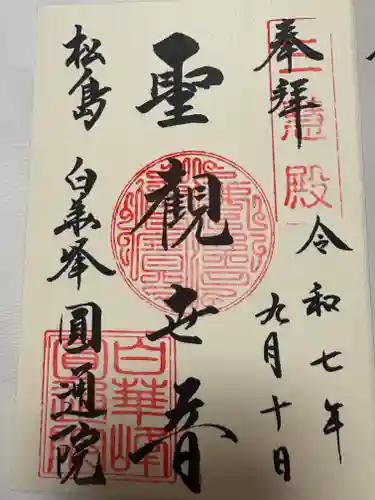 奉拝
三慧殿
令和七年
九月十日
聖観世音
松島 白華峰 圓通院
白華峰
圓通院